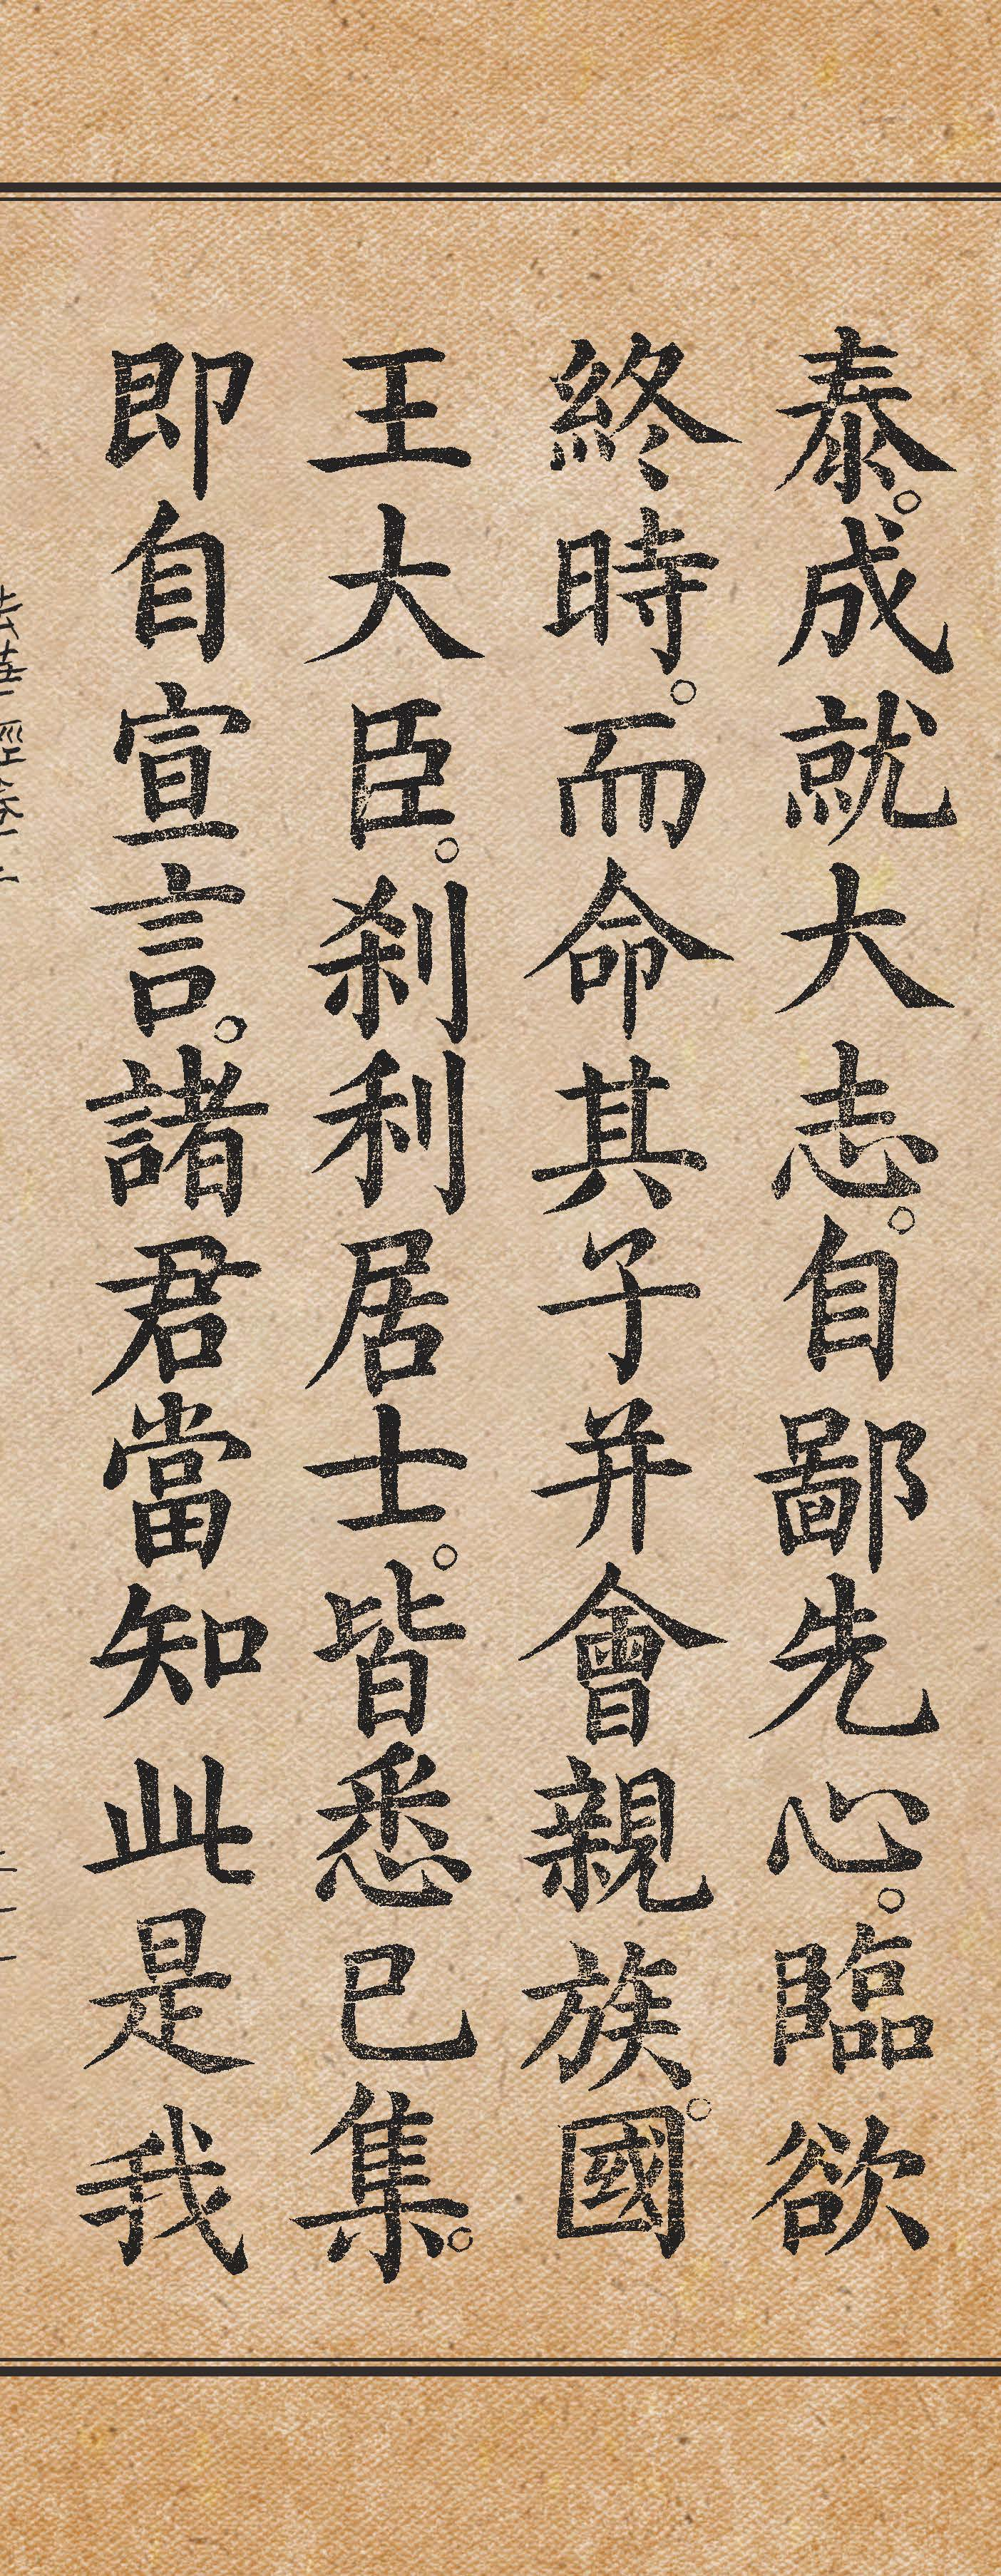 泰。成就大志。自鄙先心。臨欲
終時。而命其子并會親族。國
王大臣。刹利居士。皆悉已集。
即自宣言。諸君當知此是我